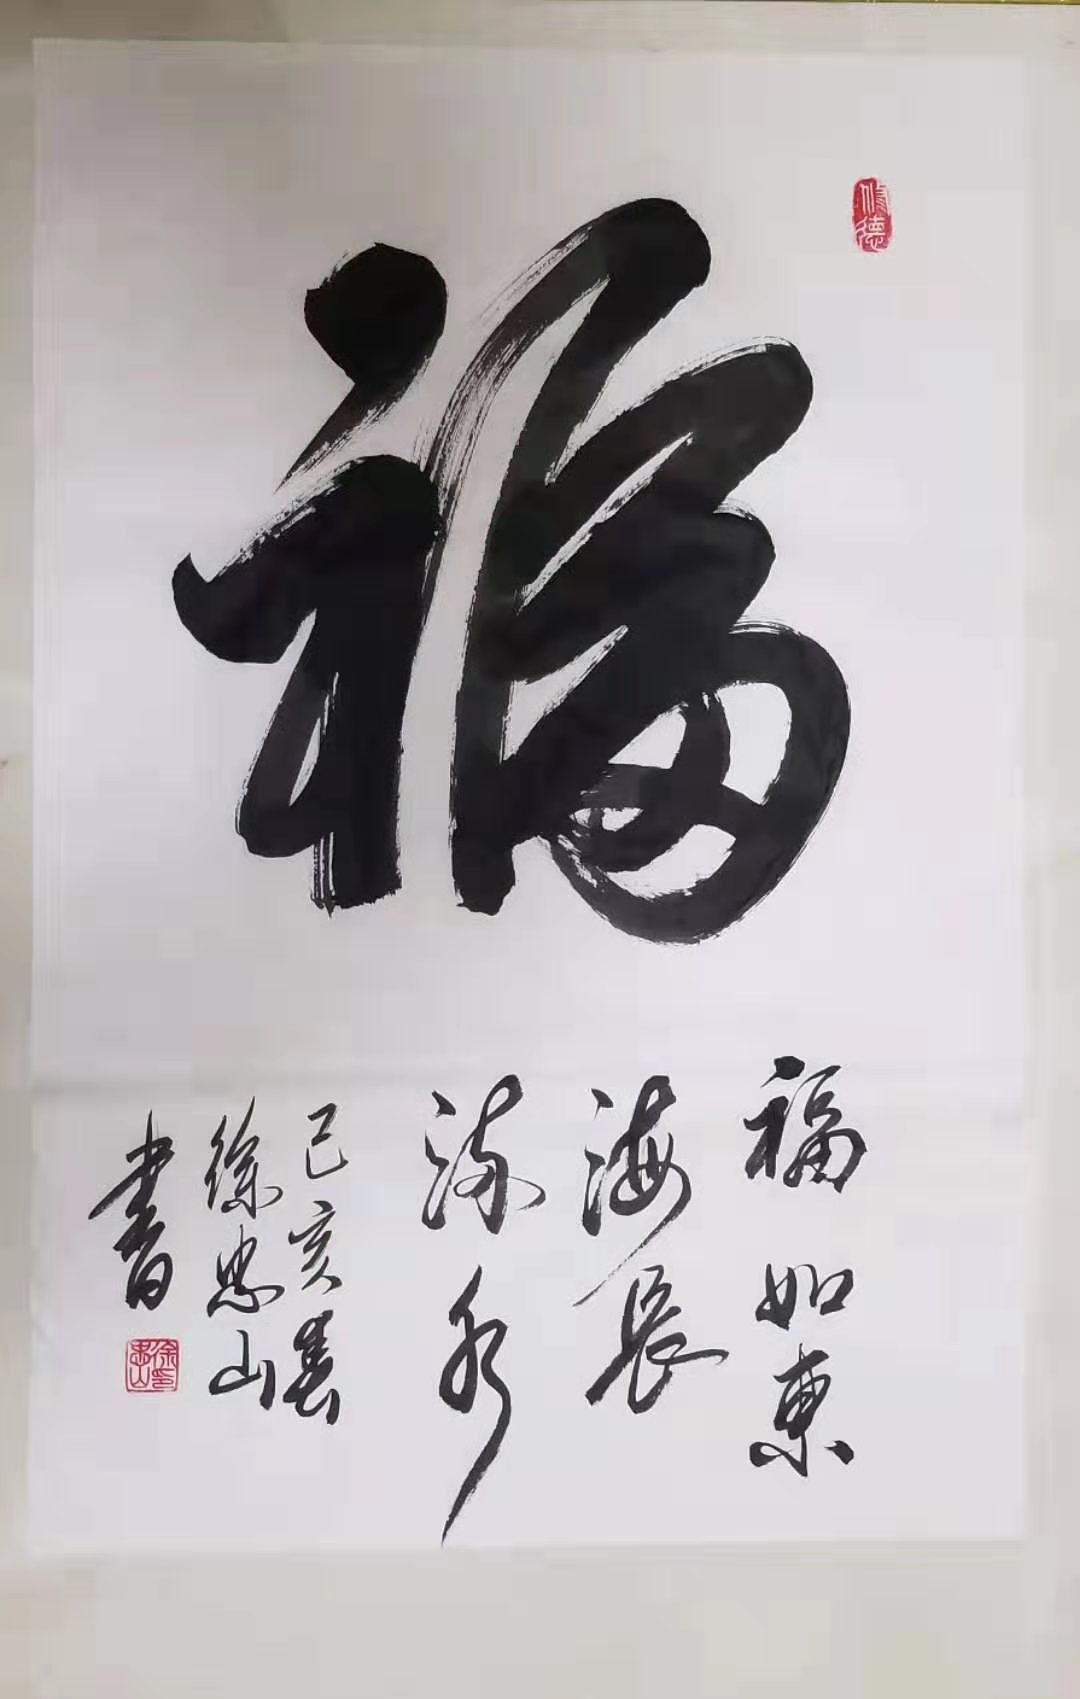 福
修德
福如東
海長
流水
己亥春
徐忠山
書
徐忠山印